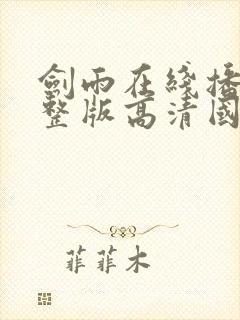 劍雨在綫播
整版高清國
菲菲木